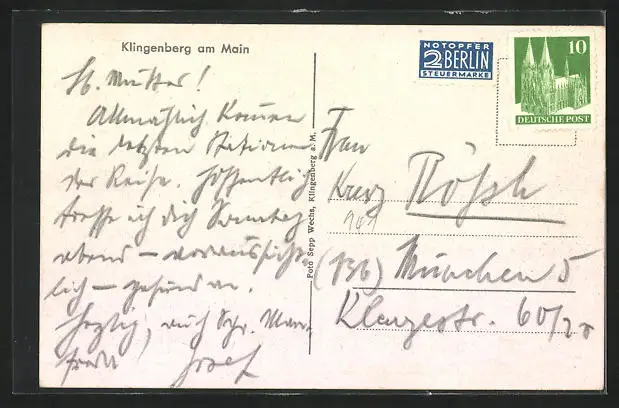 Klingenberg am Main
NOTOPFER
2 BERLIN
STEUERMARKE
10
DEUTSCHE POST
Lb. Mutter!
Allmählich kommen
die letzten Stationen
der Reise. Hoffentlich
treffe ich dich Sonntag
abend – voraussicht-
lich – gesund an.
Herzlich, auch
Josef
Foto Sepp Wecha, Klingenberg a. M.
Frau
Rösch
(13b) München 5
Klenzestr. 60/2